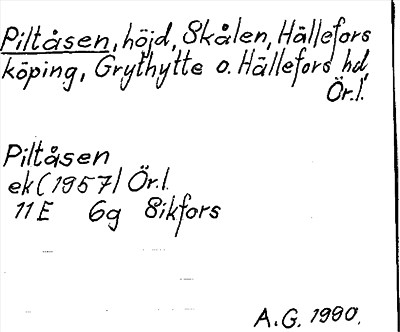 Piltåsen, höjd, Skålen, Hällefors
köping, Grythytte o. Hällefors hd,
Ör.l.
Piltåsen
ek (1957) Ör.l.
11E 6g Sikfors
A.G. 1990.